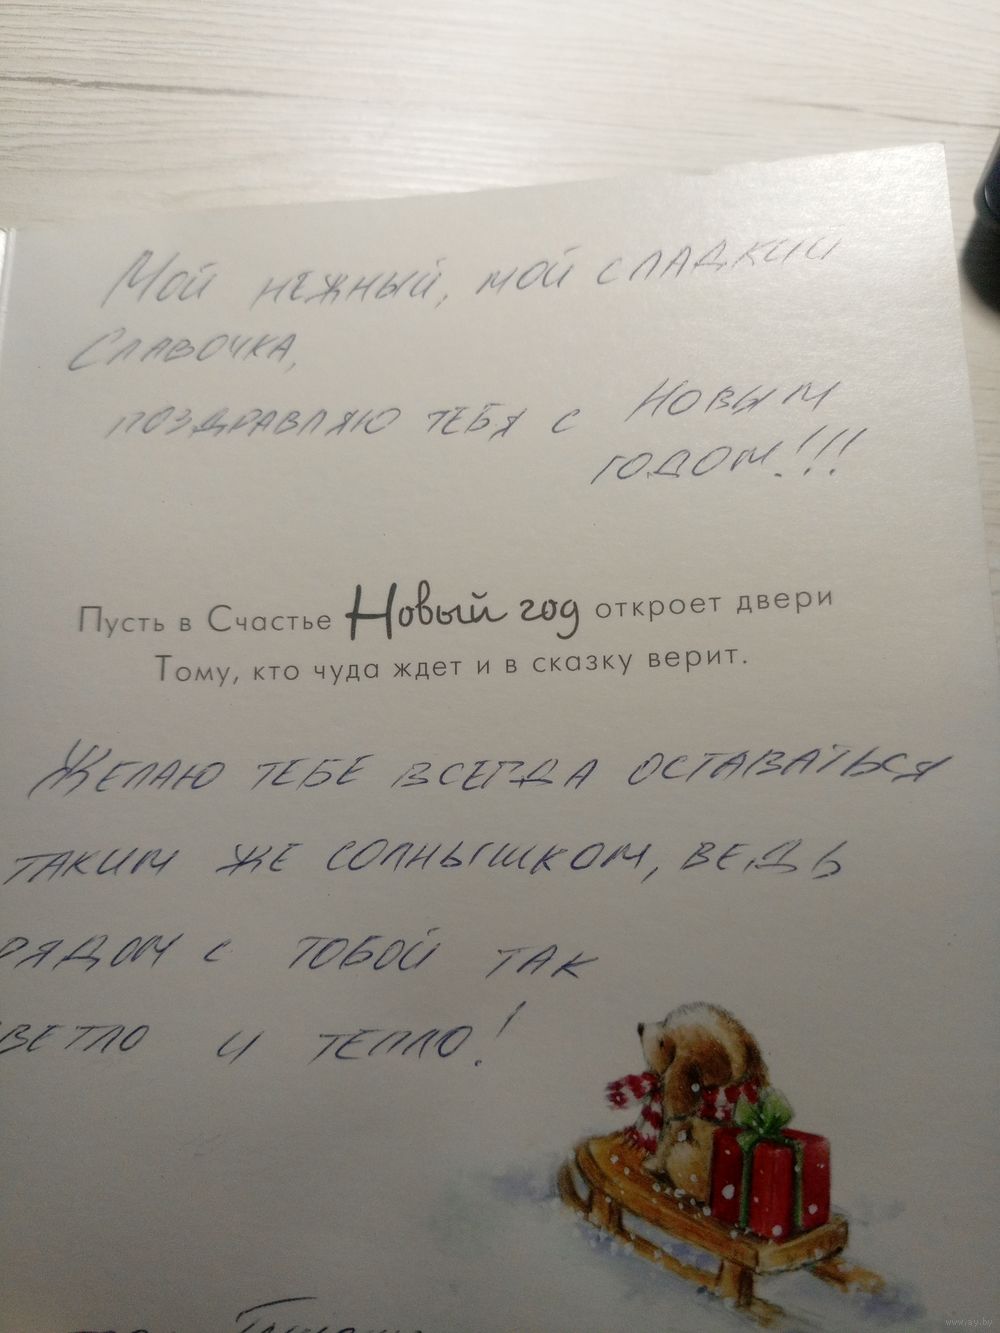 Мой нежный, мой сладкий
Славочка,
поздравляю тебя с Новым
годом!!!
Пусть в Счастье Новый год откроет двери
Тому, кто чуда ждет и в сказку верит.
Желаю тебе всегда оставаться
таким же солнышком, ведь
рядом с тобой так
ветло и тепло!
www.ay.by